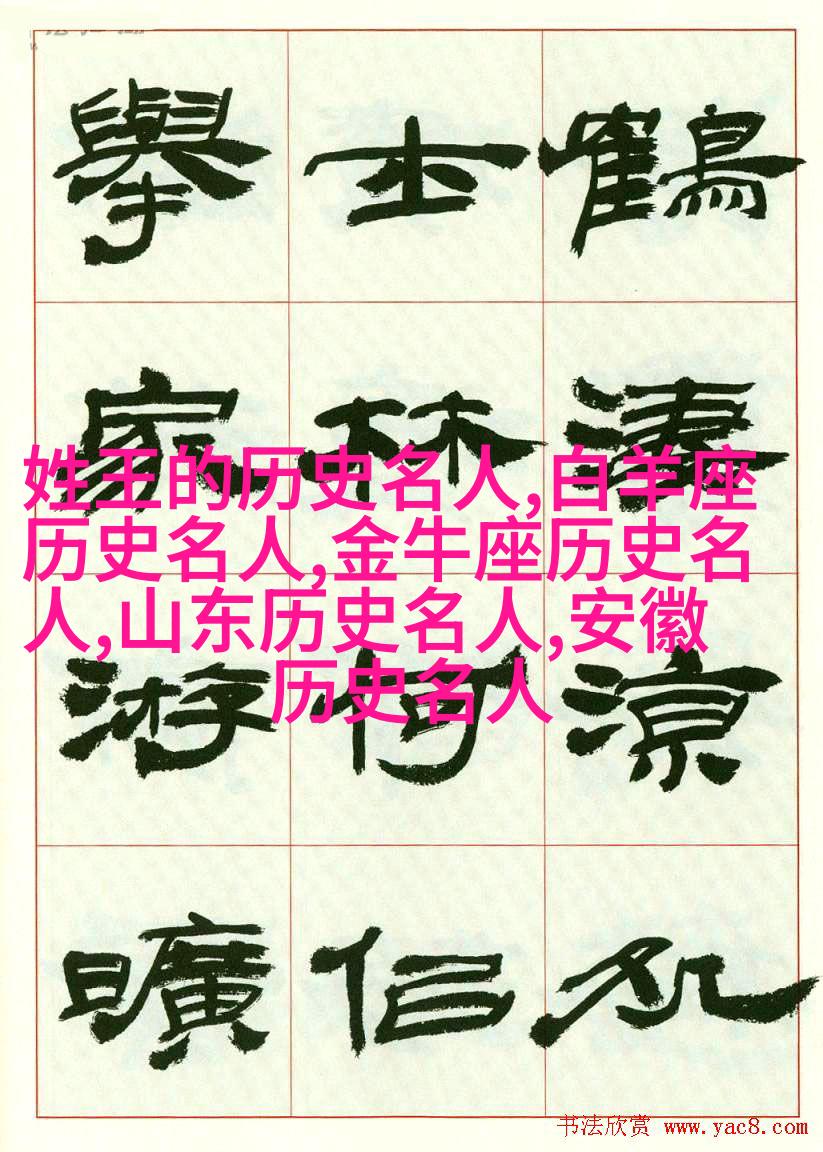 鶴淒涼
士林何侣
舉家游曠
姓王的历史名人,白羊座
历史名人,金牛座历史名
人,山东历史名人,安徽
历史名人
书法欣赏 www.yac8.com